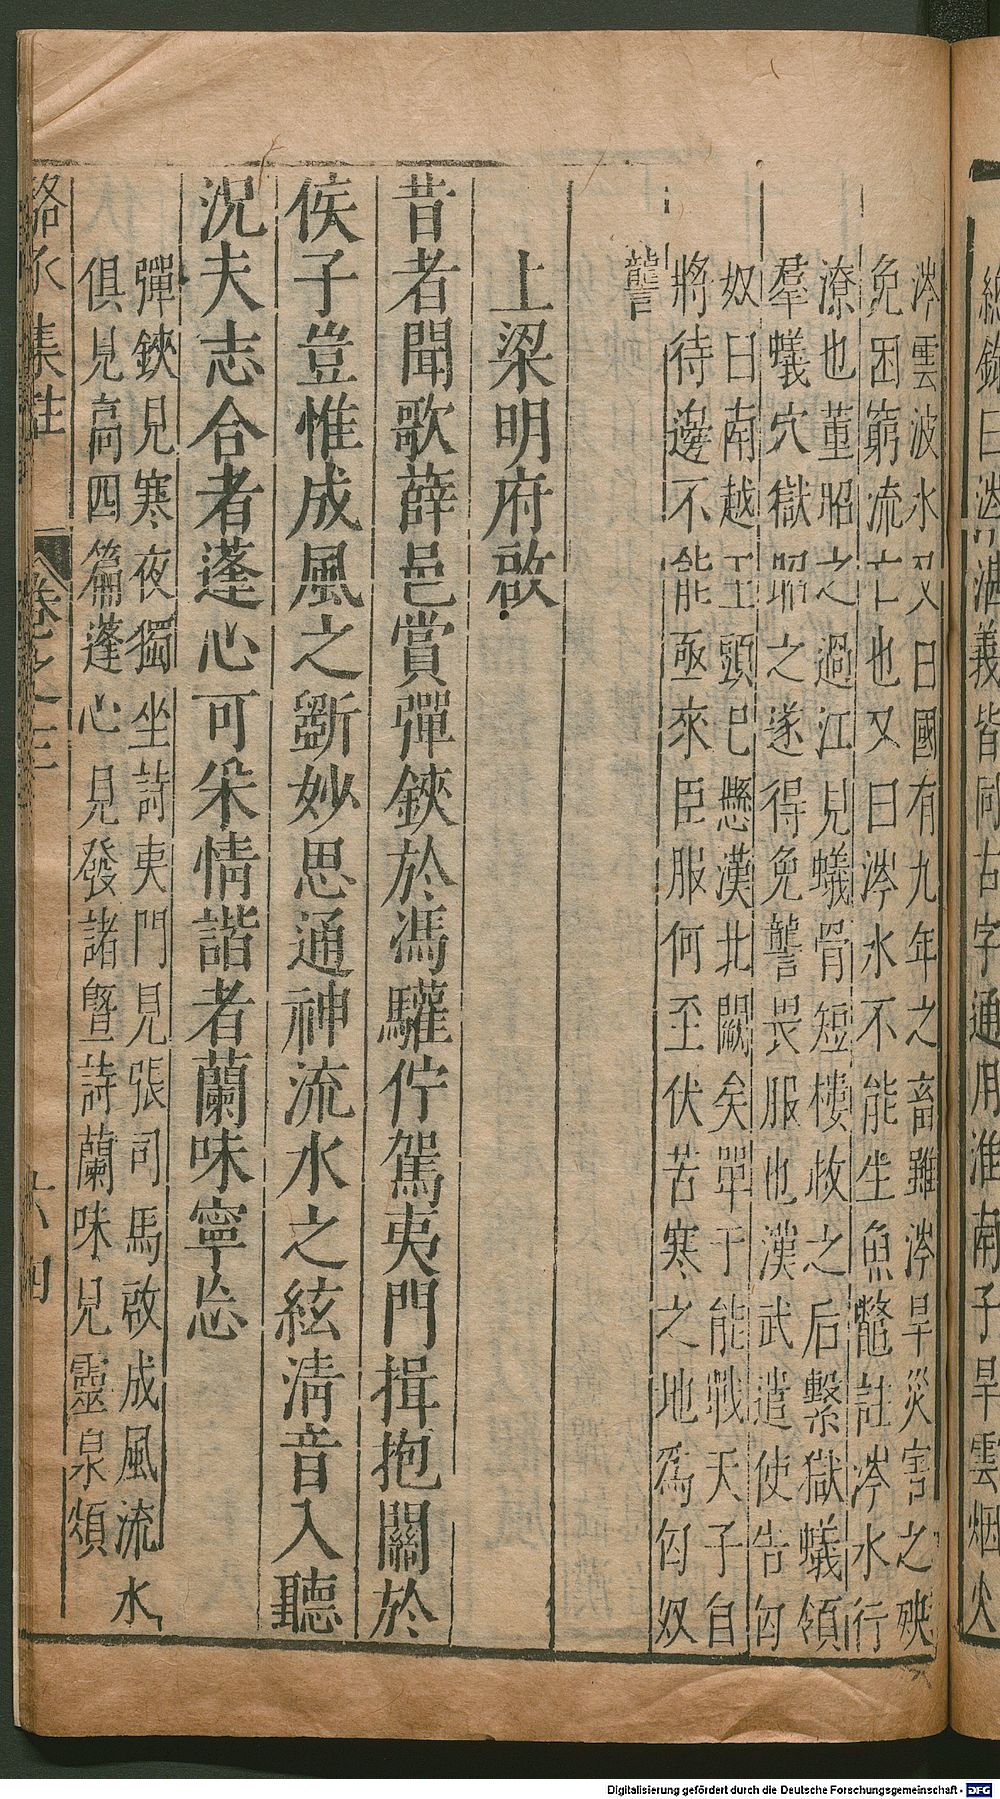 緫錄曰泧義皆同古字通用淮南子旱雲烟火
涔雲波水又曰國有九年之畜雖涔旱災害之殃
免困窮流亡也又曰涔水不能生魚鼈註涔水行
潦也董昭之過江見蟻骨短樓收之后繫獄蟻領
羣蟻穴獄昭之遂得免讋畏服也漢武遣使告匈
奴曰南越王頭已懸漢北闕矣單于能戰天子自
將待邊不能亟來臣服何至伏苦寒之地爲匈奴
讋
上梁明府啟
昔者聞歌薛邑賞彈鋏於馮驩佇駕夷門揖抱關於
侯子豈惟成風之斵妙思通神流水之絃清音入聽
況夫志合者蓬心可采情諧者蘭味寧忘
彈鋏見寒夜獨坐詩夷門見張司馬啟成風流水
俱見高四篇蓬心見發諸曁詩蘭味見靈泉頌
駱丞集註 卷之三 六四
Digitalisierung gefördert durch die Deutsche Forschungsgemeinschaft - DFG